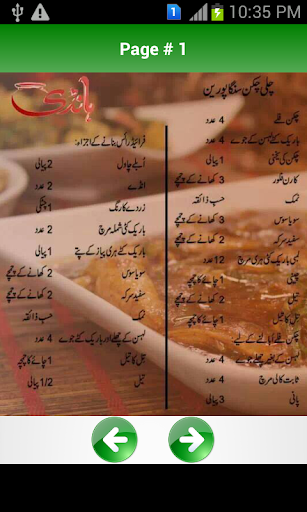 10:35 PM
Page # 1
ہانڈی
چلی چکن سنگاپورین
چکن تھے 4 عدد
باریک کٹے لہسن کے جوے 4 عدد
چکن کی یخنی 1 پیالی
کارن فلور 3 کھانے کے چمچے
نمک حسب ذائقہ
سویا سوس 3 کھانے کے چمچے
سفید سرکہ 2 کھانے کے چمچے
چینی 2 کھانے کے چمچے
کٹی ہری مرچ 12 عدد
تیل 2 کھانے کے چمچے
تل کا تیل 1 چائے کا چمچ
چکن تھے ابالنے کے لیے:
لہسن کے بغیر چھلے جوے 4 عدد
ثابت کالی مرچ 4 عدد
پانی 3 پیالی
فرائیڈ رائس بنانے کے اجزاء:
اُبلے چاول 2 پیالی
انڈے 2 عدد
زردے کا رنگ 1 چٹکی
باریک کٹی شملہ مرچ 1 عدد
باریک کٹے ہری پیاز کے پتے 1 پیالی
سویا سوس 2 کھانے کے چمچے
سفید سرکہ 2 کھانے کے چمچے
نمک حسب ذائقہ
لہسن کے چھلے اور باریک کٹے جوے 4 عدد
تل کا تیل 1 چائے کا چمچ
تیل 1/2 پیالی